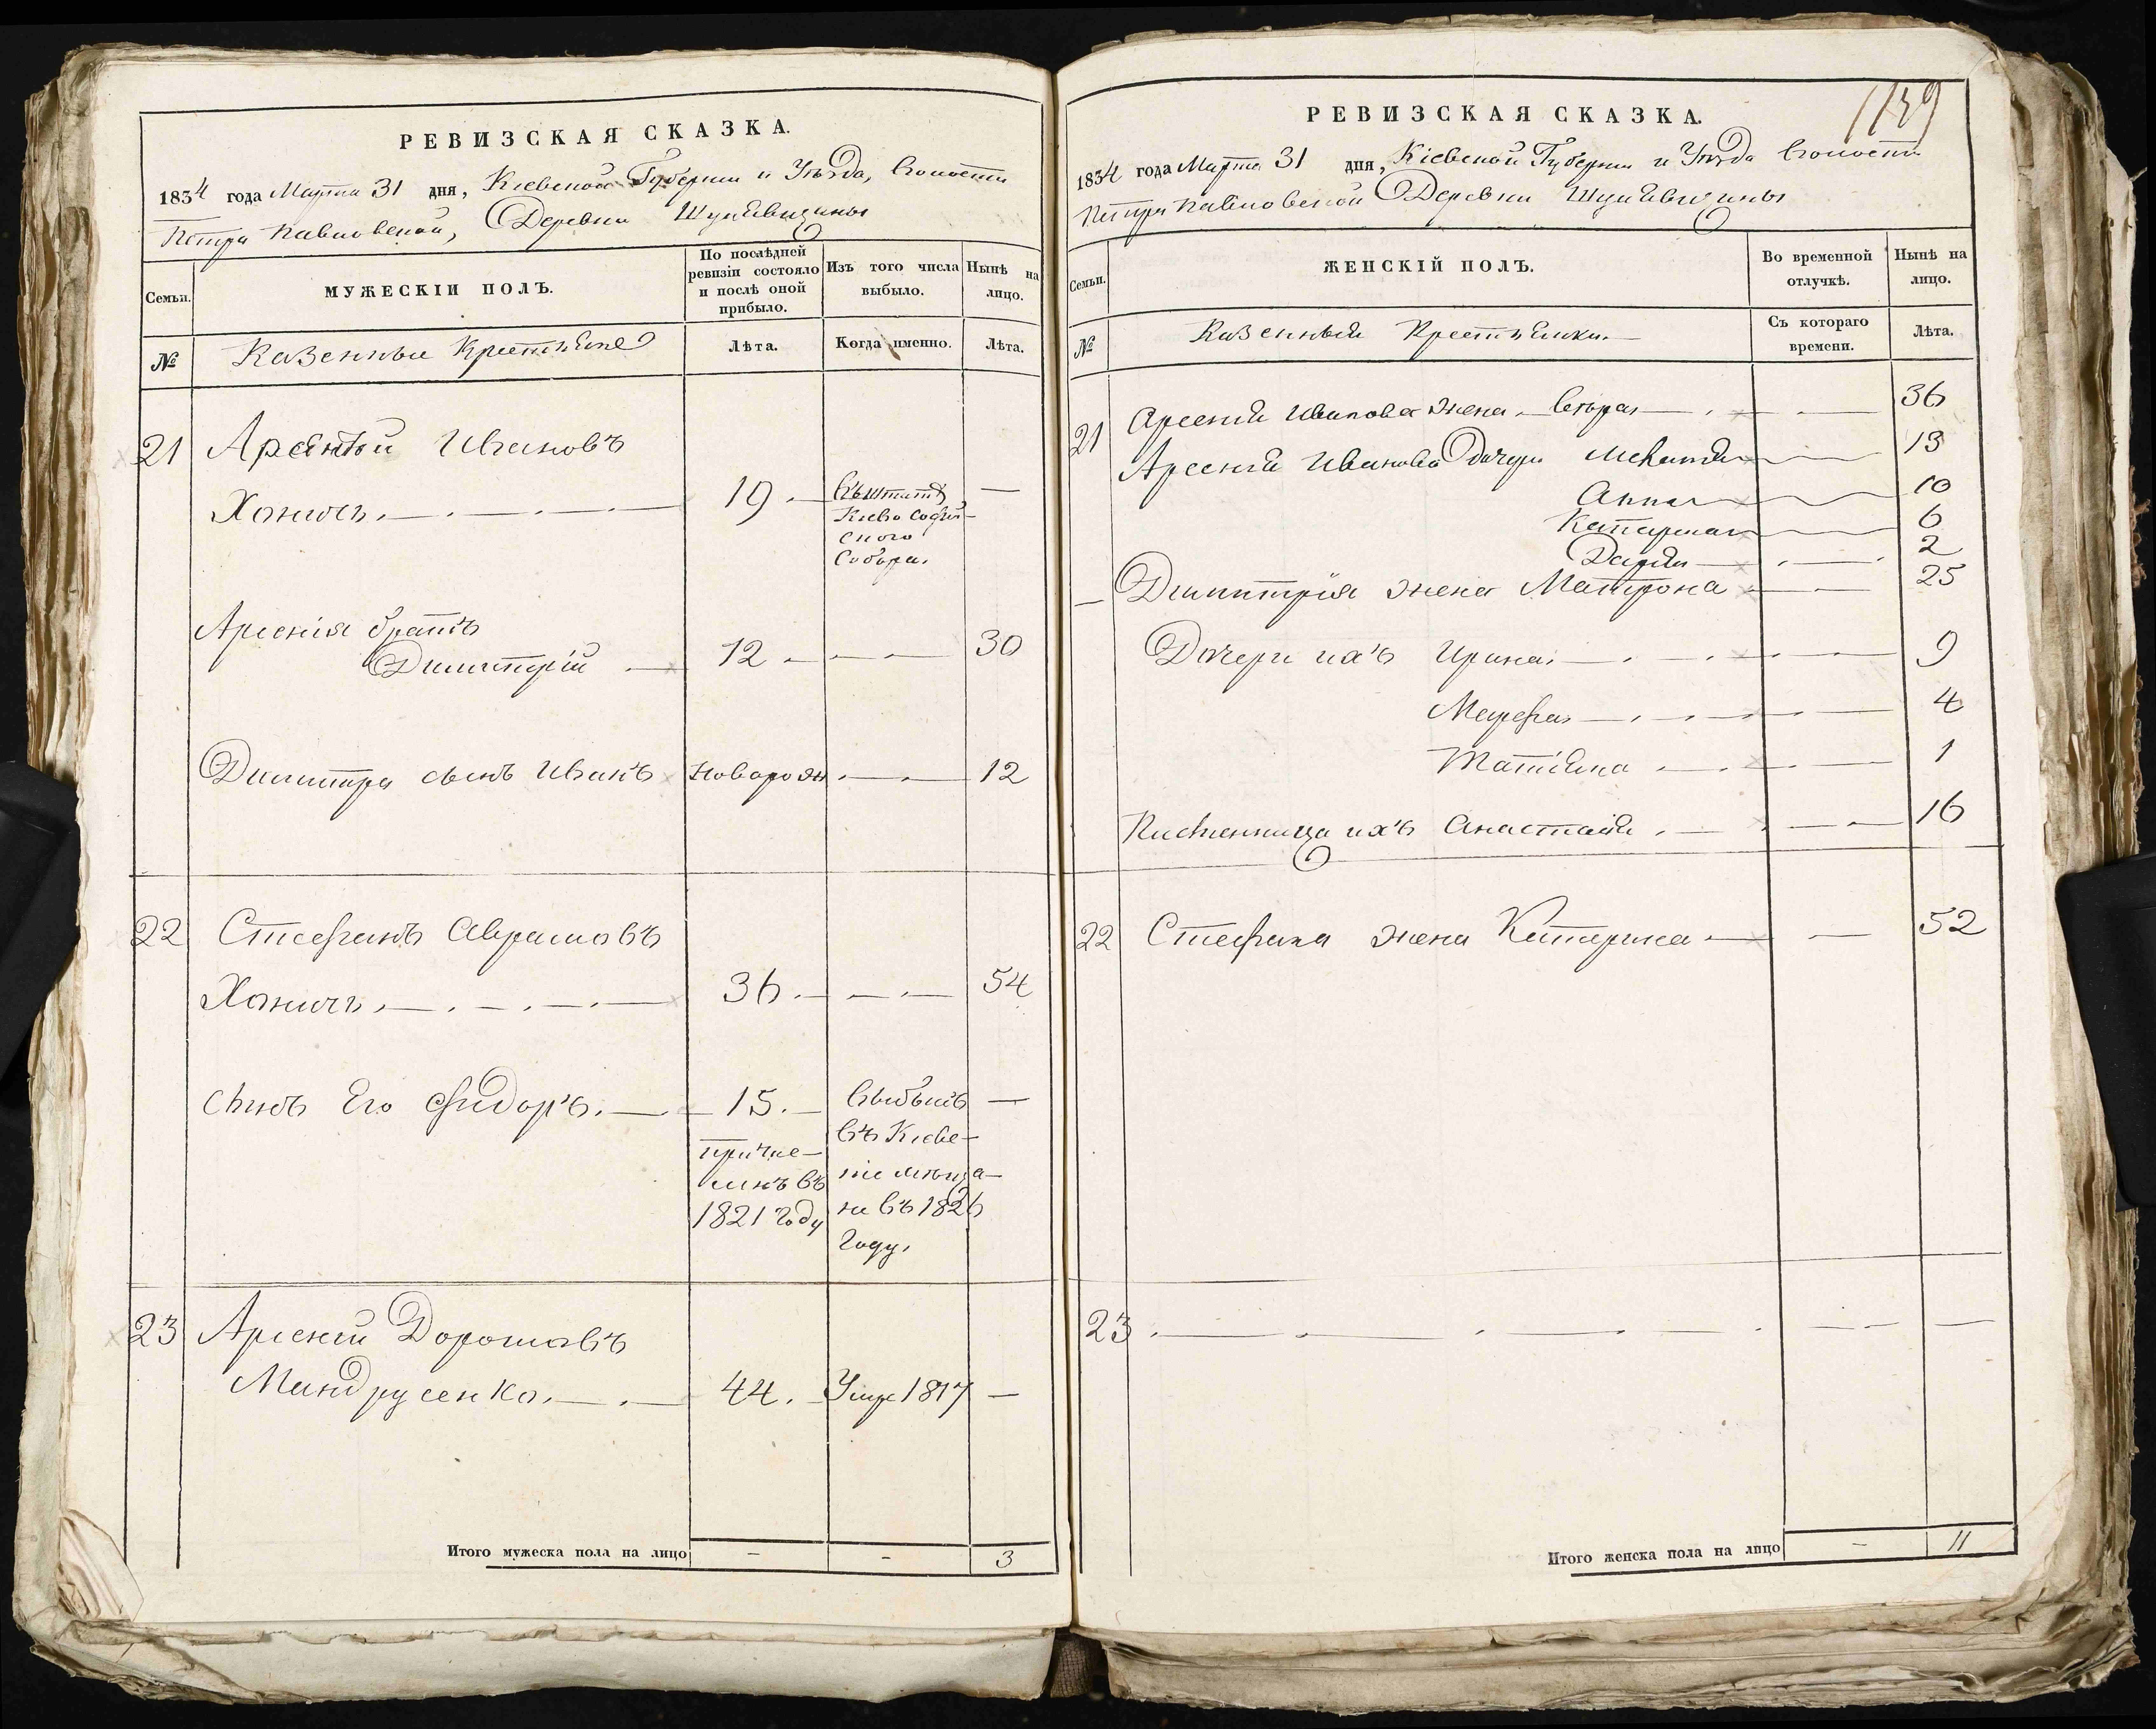 РЕВИЗСКАЯ СКАЗКА.
1834 года Марта 31 дня, Кіевской Губерніи и Уѣзда, Волости
Петро Павловской, Деревни
Семьи.
МУЖЕСКІЙ ПОЛЪ.
По послѣдней ревизіи состояло и послѣ оной прибыло.
Изъ того числа выбыло.
Нынѣ на лицо.
№
Казенные Крестьяне
Лѣта.
Когда именно.
Лѣта.
21 Арсѣнтій Ивановъ
19 —
Кіево Софій-
ского
Собора.
Арсенія братъ
Димитрій — 12 — — 30
Димитра сынъ Иванъ новорож. — — 12
22 Стефанъ Аврамовъ
36 — — 54
сынъ Его Фидоръ. — 15. — выбылъ —
причис-
ленъ въ
1821 году
въ Кіев-
кіе мѣща-
не въ 1826
году.
23 Арсеній Дорошовъ
Мандрусенко. — 44. — Умре 1817 —
Итого мужеска пола на лицо — — 3
1139
РЕВИЗСКАЯ СКАЗКА.
1834 года Марта 31 дня, Кіевской Губерніи и Уѣзда Волости
Петро Павловской Деревни
Семьи.
ЖЕНСКІЙ ПОЛЪ.
Во временной отлучкѣ.
Нынѣ на лицо.
№
Казенныя Крестьянки
Съ котораго времени.
Лѣта.
21 Арсенія Иванова жена — — 36
Арсенія Иванова дочери — 13
Анна — 10
Катерина — 6
Дарія — 2
— Димитрія жена Матрона — 25
Дочери ихъ Ирина — 9
Марфа — 4
Татіяна — 1
ихъ Анастасія — 16
22 Стефана жена Катерина — — 52
23 — — — —
Итого женска пола на лицо — 11